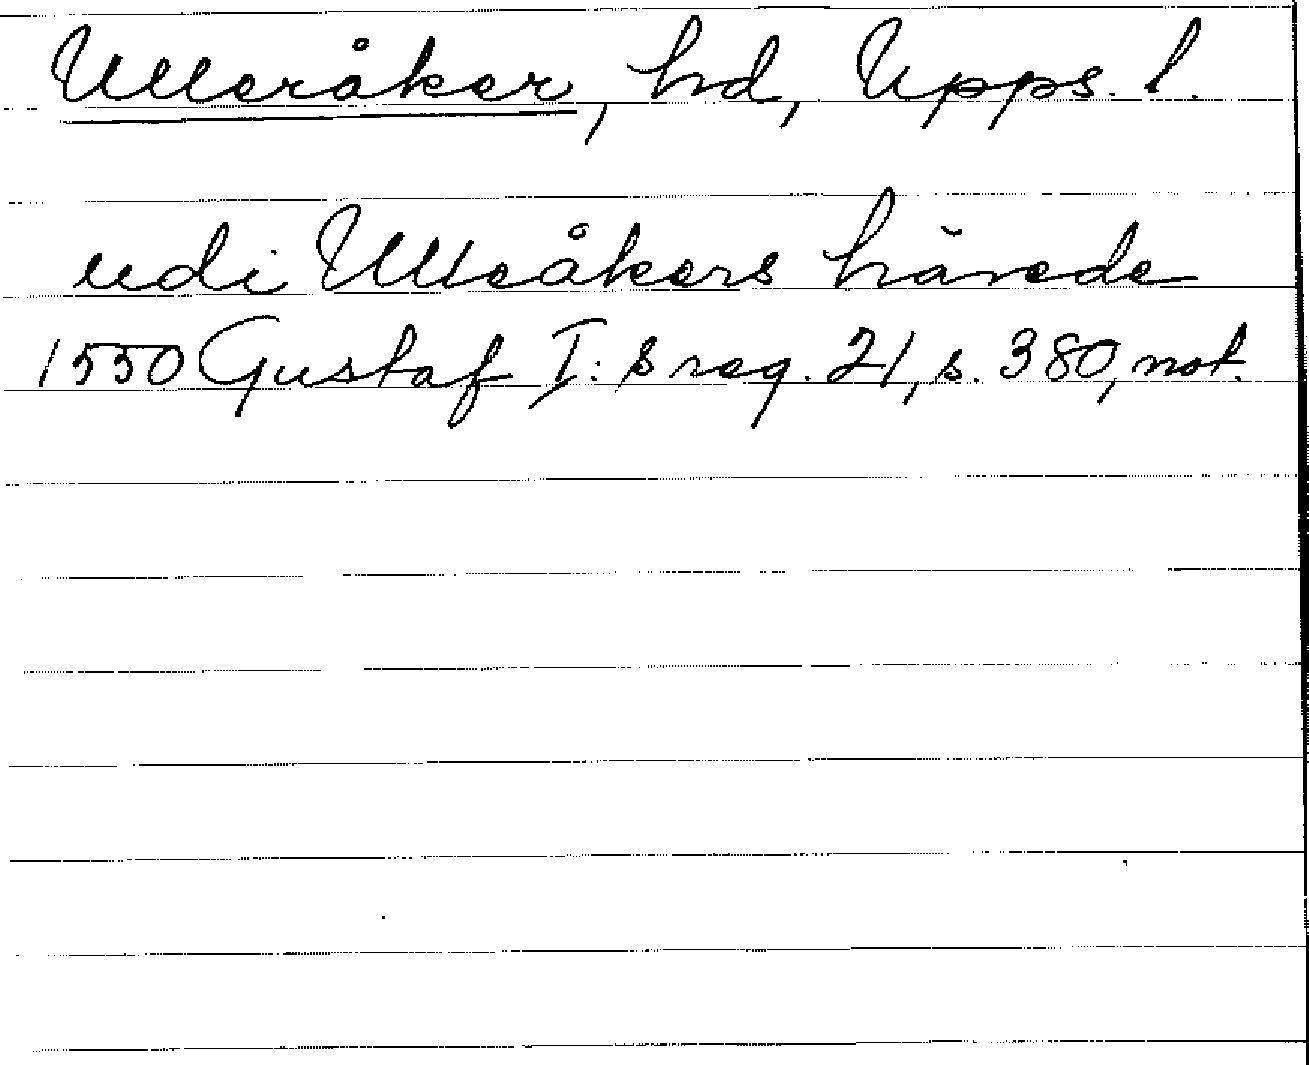 Ulleråker, hd, Upps. l.
udi Ulleåkers härede
1550 Gustaf I:s reg. 21, s. 380, not.